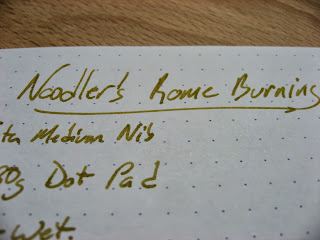 Noodler's Rome Burning
Medium Nib
80g Dot Pad
Wet.